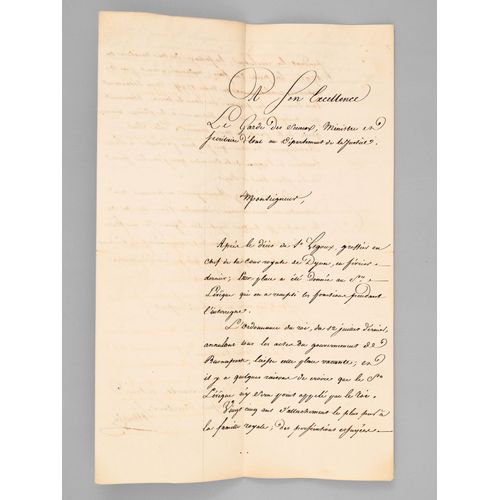 A Son Excellence
Le Garde des Sceaux, Ministre et
Secrétaire d'Etat au Département de la Justice.
Monseigneur,
Après le décès de Sr Legoux, greffier en
chef de la Cour royale de Dijon, en février
dernier; Cette place a été donnée au Sr
Lévêque qui en a rempli les fonctions pendant
l'interrègne.
L'Ordonnance du roi, du 12 juillet dernier,
annulant tous les actes du gouvernement de
Buonaparte, laisse cette place vacante; et
il y a quelques raisons de croire que le Sr
Lévêque n'y sera point appelé par le Roi.
Vingt cinq ans d'attachement le plus pur à
la famille royale; des proscriptions essuyées